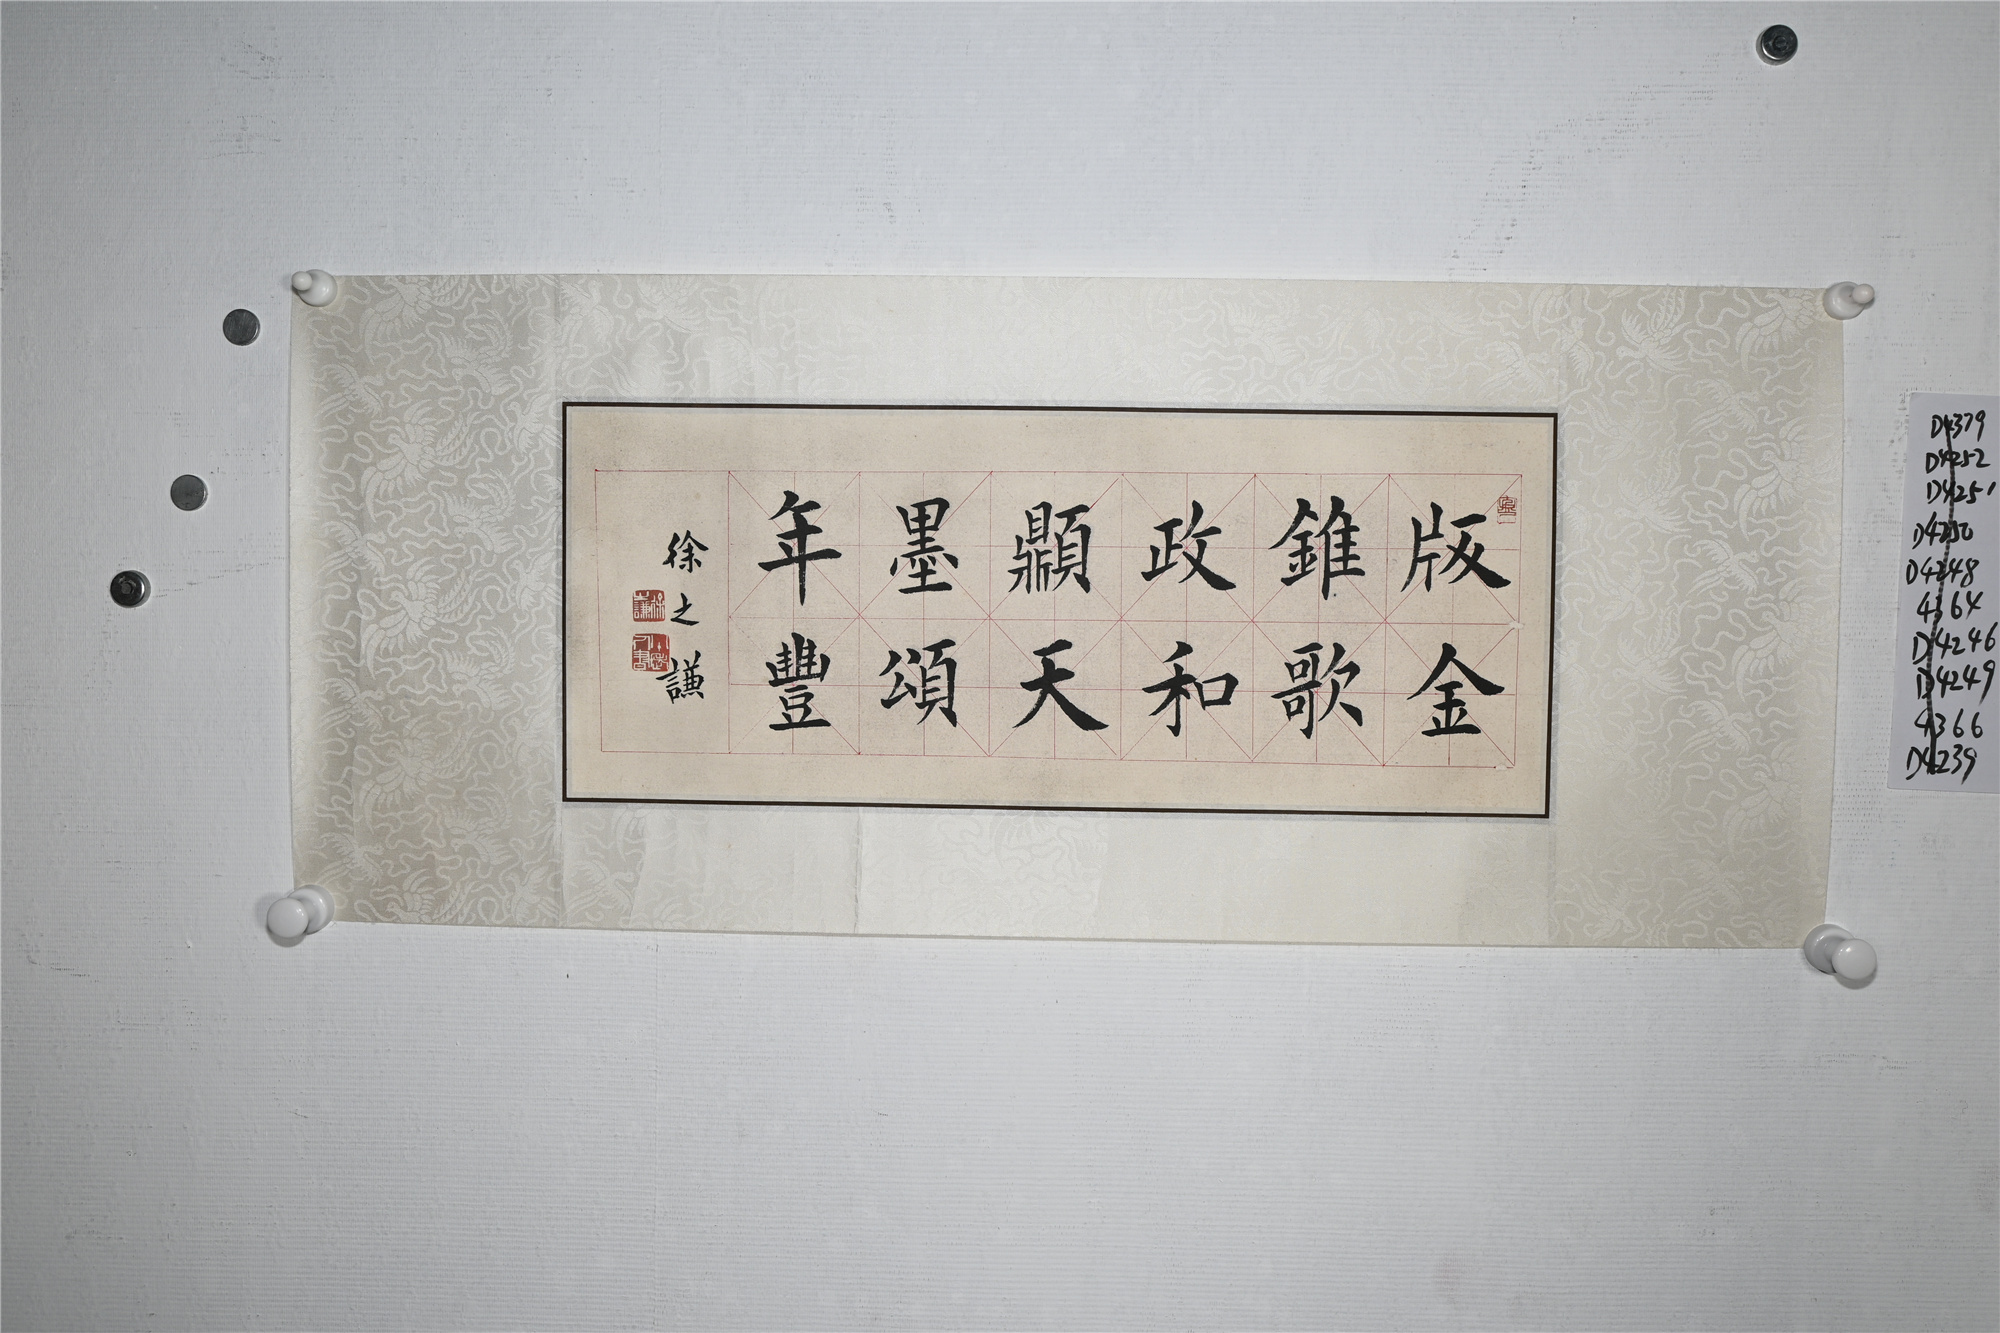 版金
錐歌
政和
天
墨頌
年豐
徐之謙
D4379
D4252
D4251
D4250
D4248
4364
D4246
D4249
4366
D4239